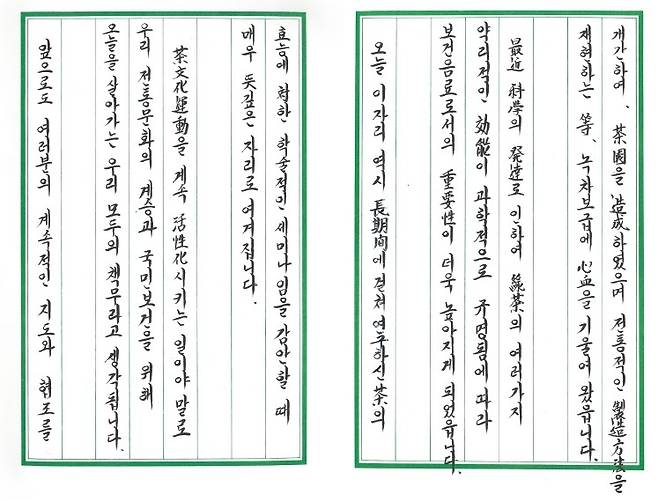 개간하여、茶園을 造成하였으며 전통적인 製造方法을
재현하는 等、녹차보급에 心血을 기울여 왔읍니다.
最近 科學의 発達로 인하여 綠茶의 여러가지
약리적인 効能이 과학적으로 규명됨에 따라
보건음료로서의 重要性이 더욱 높아지게 되었읍니다.
오늘 이자리 역시 長期間에 걸쳐 연구하신 茶의
효능에 対한 학술적인 세미나임을 감안할 때
매우 뜻깊은 자리로 여겨집니다.
茶文化運動을 계속 活性化시키는 일이야 말로
우리 전통문화의 계승과 국민보건을 위해
오늘을 살아가는 우리 모두의 책무라고 생각됩니다.
앞으로도 여러분의 계속적인 지도와 협조를